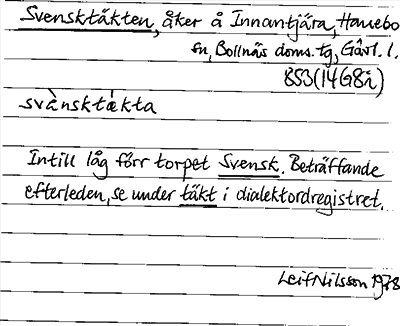 Svensktäkten, åker å Innantjära, Hanebo
sn, Bollnäs doms. tg, Gävl. l.
853 (14G8i)
svànsktǽkta
Intill låg förr torpet Svensk. Beträffande
efterleden, se under täkt i dialektordregistret.
Leif Nilsson 1978